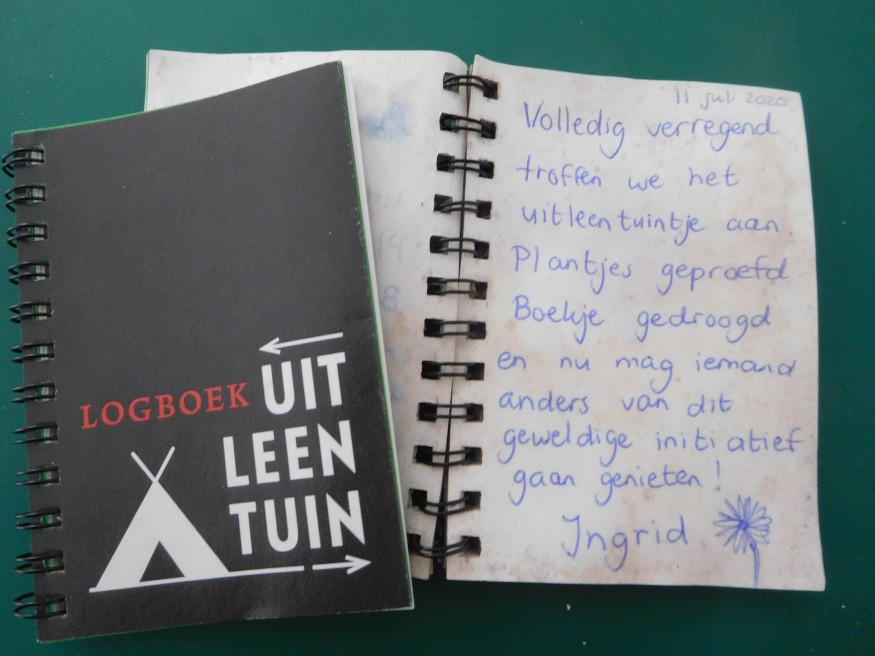 LOGBOEK UIT
LEEN
TUIN
11 juli 2020
Volledig verregend
troffen we het
uitleentuintje aan
Plantjes geproefd
Boekje gedroogd
en nu mag iemand
anders van dit
geweldige initiatief
gaan genieten!
Ingrid